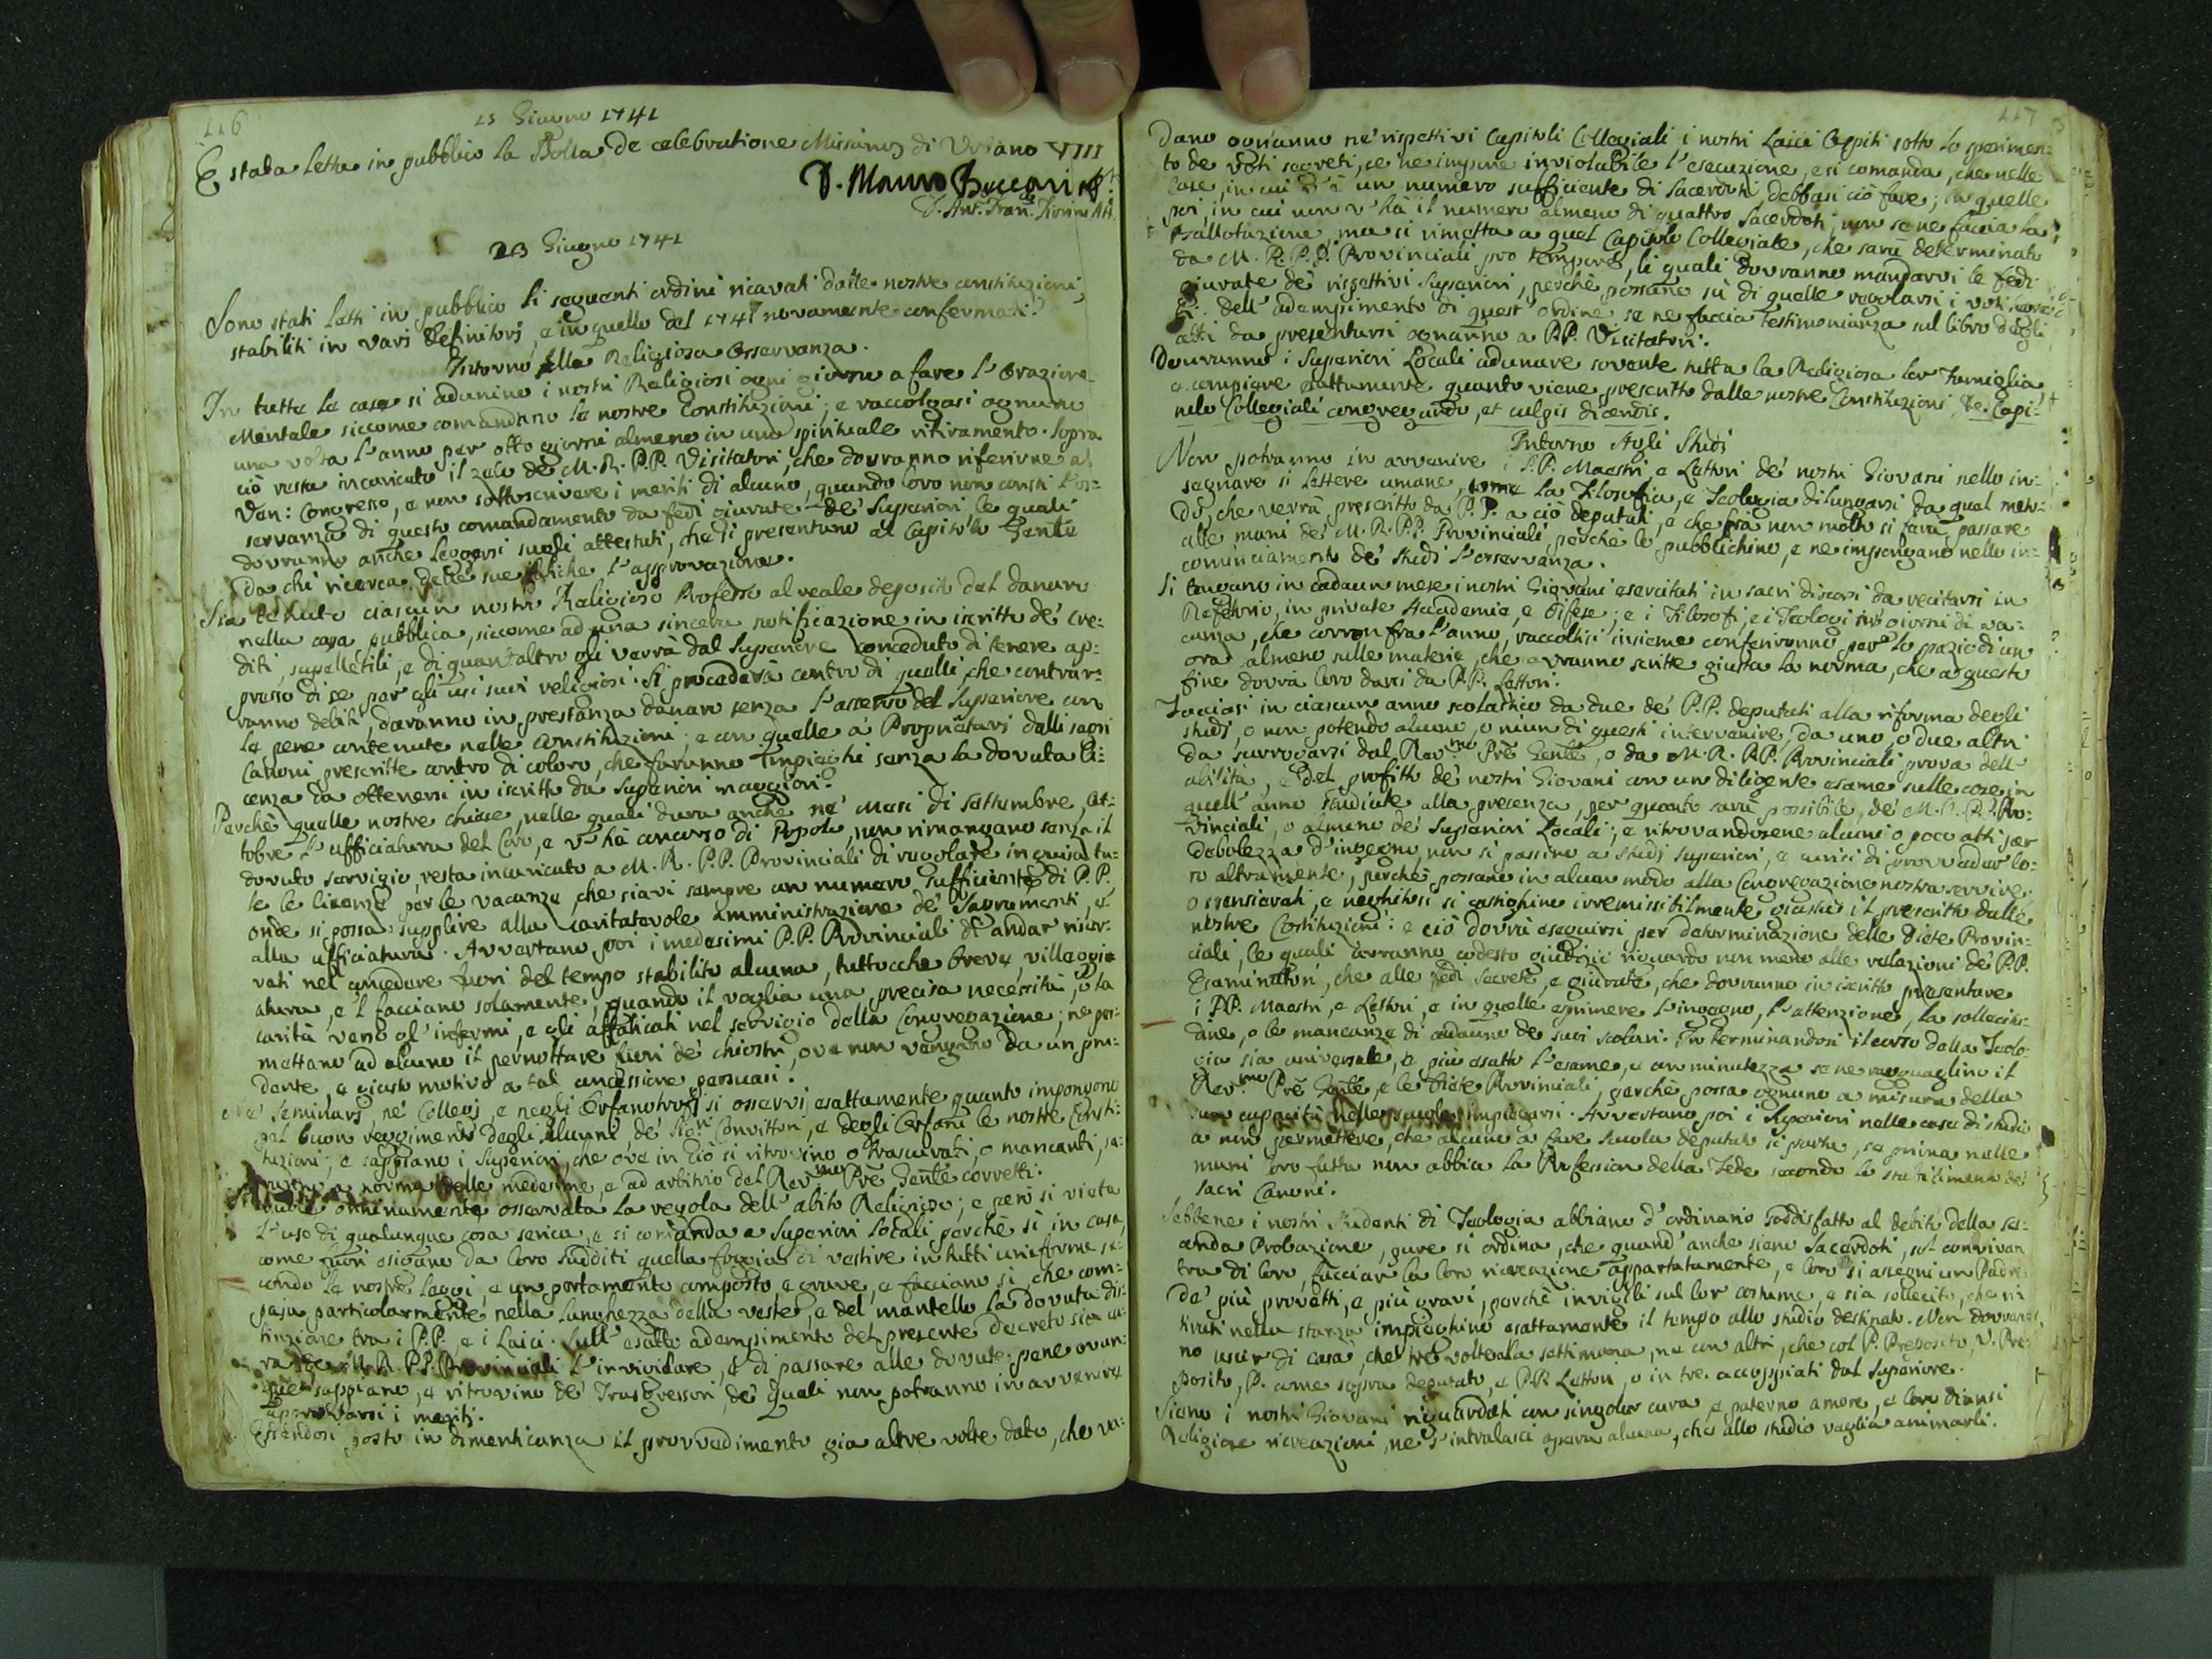 116
15 Giugno 1741
E stata letta in pubblico la Bolla de celebratione Missarum di Urbano VIII
D. Mauro Baccari
D. Ant. Fran.
23 Giugno 1741
Sono stati letti in pubblico li seguenti ordini ricavati dalle nostre constituzioni,
stabiliti in varj Definitorj, e in quello del 1741 novamente confermati.
Intorno alla Religiosa Osservanza.
In tutte le case si adunino i nostri Religiosi ogni giorno a fare l'Orazione
Mentale siccome comandano le nostre Constituzioni; e raccolgasi ognuno
una volta l'anno per otto giorni almeno in uno spirituale ritiramento. Sopra
ciò resta incaricato il zelo de' M. R. P.P. Visitatori, che dovranno riferirne al
Ven: Congresso, e non sottoscrivere i meriti di alcuno, quando loro non consti l'os=
servanza di questo comandamento da fedi giurate de' Superiori le quali
dovranno anche leggersi sugli attestati, che si presentano al Capitolo Genle
da chi ricerca delle sue fatiche l'approvazione.
Sia tenuto ciascun nostro Religioso Professo al reale deposito del danaro
nella cassa pubblica, siccome ad una sincera notificazione in iscritto de' cre=
diti, supellétili, e di quant'altro gli verrà dal Superiore conceduto di tenere ap=
presso di se per gli usi suoi religiosi. Si procederà contro di quelli, che contrar=
ranno debiti, daranno in prestanza danaro senza l'assenso del Superiore con
le pene contenute nelle Constituzioni; e con quelle a' Proprietarj dalli sagri
Canoni prescritte contro di coloro, che faranno Impieghi senza la dovuta li=
cenza da ottenersi in iscritto da Superiori maggiori.
Perchè quelle nostre chiese, nelle quali dura anche ne' Mesi di Settembre, Ot=
tobre l'ufficiatura del Coro, e v' hà concorso di Popolo, non rimangano senza il
dovuto servigio, resta incaricato a M. R. P.P. Provinciali di regolare in guisa tu=
te le licenze per le vacanze, che siavi sempre un numero sufficiente di P.P.
onde si possa supplire alla caritatevole amministrazione de' Sagramenti, e
alla ufficiatura. Avvertano poi i medesimi P.P. Provinciali di andar riser=
vati nel concedere fuori del tempo stabilito alcuna, tuttocche breve, villeggia
atura, e 'l facciano solamente, quando il voglia una precisa necessità, o la
carità verso gl' infermi, e gli affaticati nel servigio della Congregazione; ne per=
mettano ad alcuno il pernottare fuori de' chiostri, ove non vengano da un pru=
dente, e giusto motivo a tal concessione persuasi.
Ne' Seminarj, ne' Collegj, e negli Orfanotrofj si osservi esattamente quanto impongono
pel buon reggimento degli Alunni, de' Sig.ri Convittori, e degli Orfani le nostre Consti=
tuzioni; e sappiano i Superiori, che ove in ciò si ritrovino o trascurati, o mancanti, sa=
ranno a norma delle medesime, e ad arbitrio del Rev.mo Pre Genle corretti.
onninamente osservata la regola dell' abito Religioso; e però si vieta
l'uso di qualunque cosa serica, e si comanda a Superiori Locali perchè sì in casa,
come fuori esigano da loro sudditi quella foggia di vestire in tutti uniforme se=
condo le nostre leggi, e un portamento composto, e grave, e facciano sì, che com=
paja particolarmente nella lunghezza della veste, e del mantello la dovuta dis=
tinzione tra i P.P. e i Laici. Sull' esatto adempimento del presente decreto sia cu=
ra de' M. R. P.P. Provinciali l'invigilare, e di passare alle dovute pene ovun=
que sappiano, e ritrovino de' Trasgressori, de' quali non potranno in avvenire
approvarsi i meriti.
Essendosi posto in dimenticanza il provvedimento gia altre volte dato, che va=
117
dano ogn'anno ne' rispettivi Capitoli Collegiali i nostri Laici Ospiti sotto lo sperimen=
to de' voti segreti, se ne impone inviolabile l'esecuzione, e si comanda, che nelle
Case, in cui v' è un numero sufficiente di Sacerdoti, debbasi ciò fare; in quelle
poi, in cui non v' hà il numero almeno di quattro Sacerdoti, non se ne faccia la
Ballotazione, ma si rimetta a quel Capitolo Collegiale, che sarà determinato
da M. R. P.P. Provinciali pro tempore, li quali dovranno mandarvi le fedi
giurate de' rispettivi Superiori, perchè possano sù di quelle regolarsi i voti
E dell' adempimento di quest' ordine se ne faccia testimonianza sul libro degli
atti da presentarsi ognanno a P.P. Visitatori.
Dovranno i Superiori Locali adunare sovente tutta la Religiosa lor Famiglia,
a compiere esattamente quanto viene prescritto dalle nostre Constituzioni, de Capi=
nelo Collegiali congregando, et culpis dicendis.
Intorno Agli Studj
Non potranno in avvenire i P.P. Maestri e Lettori de' nostri Giovani nello in=
segnare sì Lettere umane, come la Filosofia, e Teologia dilungarsi da quel meto=
do, che verrà prescritto da P.P. a ciò deputati, e che frà non molto si farà passare
alle mani de' M. R. P.P. Provinciali perchè lo pubblichino, e ne impongano nello in=
cominciamento de' studj l'osservanza.
Si tengano in cadaun mese i nostri Giovani esercitati in sacri discorsi da recitarsi in
Refettorio, in private Accademie, e Difese; e i Filosofi, e i Teologi ne' giorni di va=
canza, che corron fra l'anno, raccoltisi insieme conferiranno per lo spazio di un
ora almeno sulle materie, che avranno scritte giusta la norma, che a questo
fine dovrà loro darsi da P.P. Lettori.
Facciasi in ciascun anno scolastico da due de' P.P. deputati alla riforma degli
studj, o non potendo alcuno, o niun di questi intervenire, da uno, o due altri
da surrogarsi dal Rev.mo Prē Genle, o da M. R. P.P. Provinciali prova dell'
abilita, e del profitto de' nostri Giovani con un diligente esame sulle cose in
quell' anno studiate alla presenza, per quanto sarà possibile, de' M. R. P.P. Pro=
vinciali, o almeno de' Superiori Locali; e ritrovandosene alcuni o poco atti per
debolezza d' ingegno, non si passino a studj superiori, e curisi di provveder lo=
ro altramente, perchè possano in alcun modo alla Congregazione nostra servire;
o spensierati, e neghittosi si castighino irremissibilmente giusta il prescritto dalle
nostre Constituzioni: e ciò dovrà eseguirsi per determinazione delle Diete Provin=
ciali, le quali avranno codesto giudizio riguardo non meno alle relazioni de' P.P.
Esaminatori, che alle fedi secrete, e giurate, che dovranno in iscritto presentare
i P.P. Maestri, e Lettori, e in quelle esprimere l'ingegno, l'attenzione, la sollecitu=
dine, o le mancanze di cadauno de' suoi scolari. In terminandosi il corso della Teolo=
gia sia universale, e più esatto l'esame, e con minutezza se ne ragguaglino il
Rev.mo Prē Genle, e le Diete Provinciali, perchè possa ognuno a misura della
sua capacità nelle scuole impiegarsi. Avvertano poi i Superiori nelle case di studio
a non permettere, che alcuno a fare scuola deputato si porta, se prima nelle
mani loro fatta non abbia la Professione della Fede secondo lo stabilimento de'
Sacri Canoni.
Sebbene i nostri Studenti di Teologia abbiano d' ordinario soddisfatto al debito della se=
conda Probazione, pure si ordina, che quand' anche sieno Sacerdoti, sol convivan
tra di loro, faccian la loro ricreazione appartatamente, e loro si assegni un Padre
de' più provetti, e più gravi, perchè invigili sul lor costume, e sia sollecito, che ri
tirati nella stanza impieghino esattamente il tempo allo studio destinato. Non dovran=
no uscir di casa, che tre volte la settimana, ne con altri, che col P. Preposito, V. Pre=
posito, P. come sopra deputato, e P.P. Lettori, o in tre accoppiati dal Superiore.
Sieno i nostri Giovani riguardati con singolar cura, e paterno amore, e loro diansi
Religiose ricreazioni, ne s'intralasci opera alcuna, che allo studio vaglia animarli.